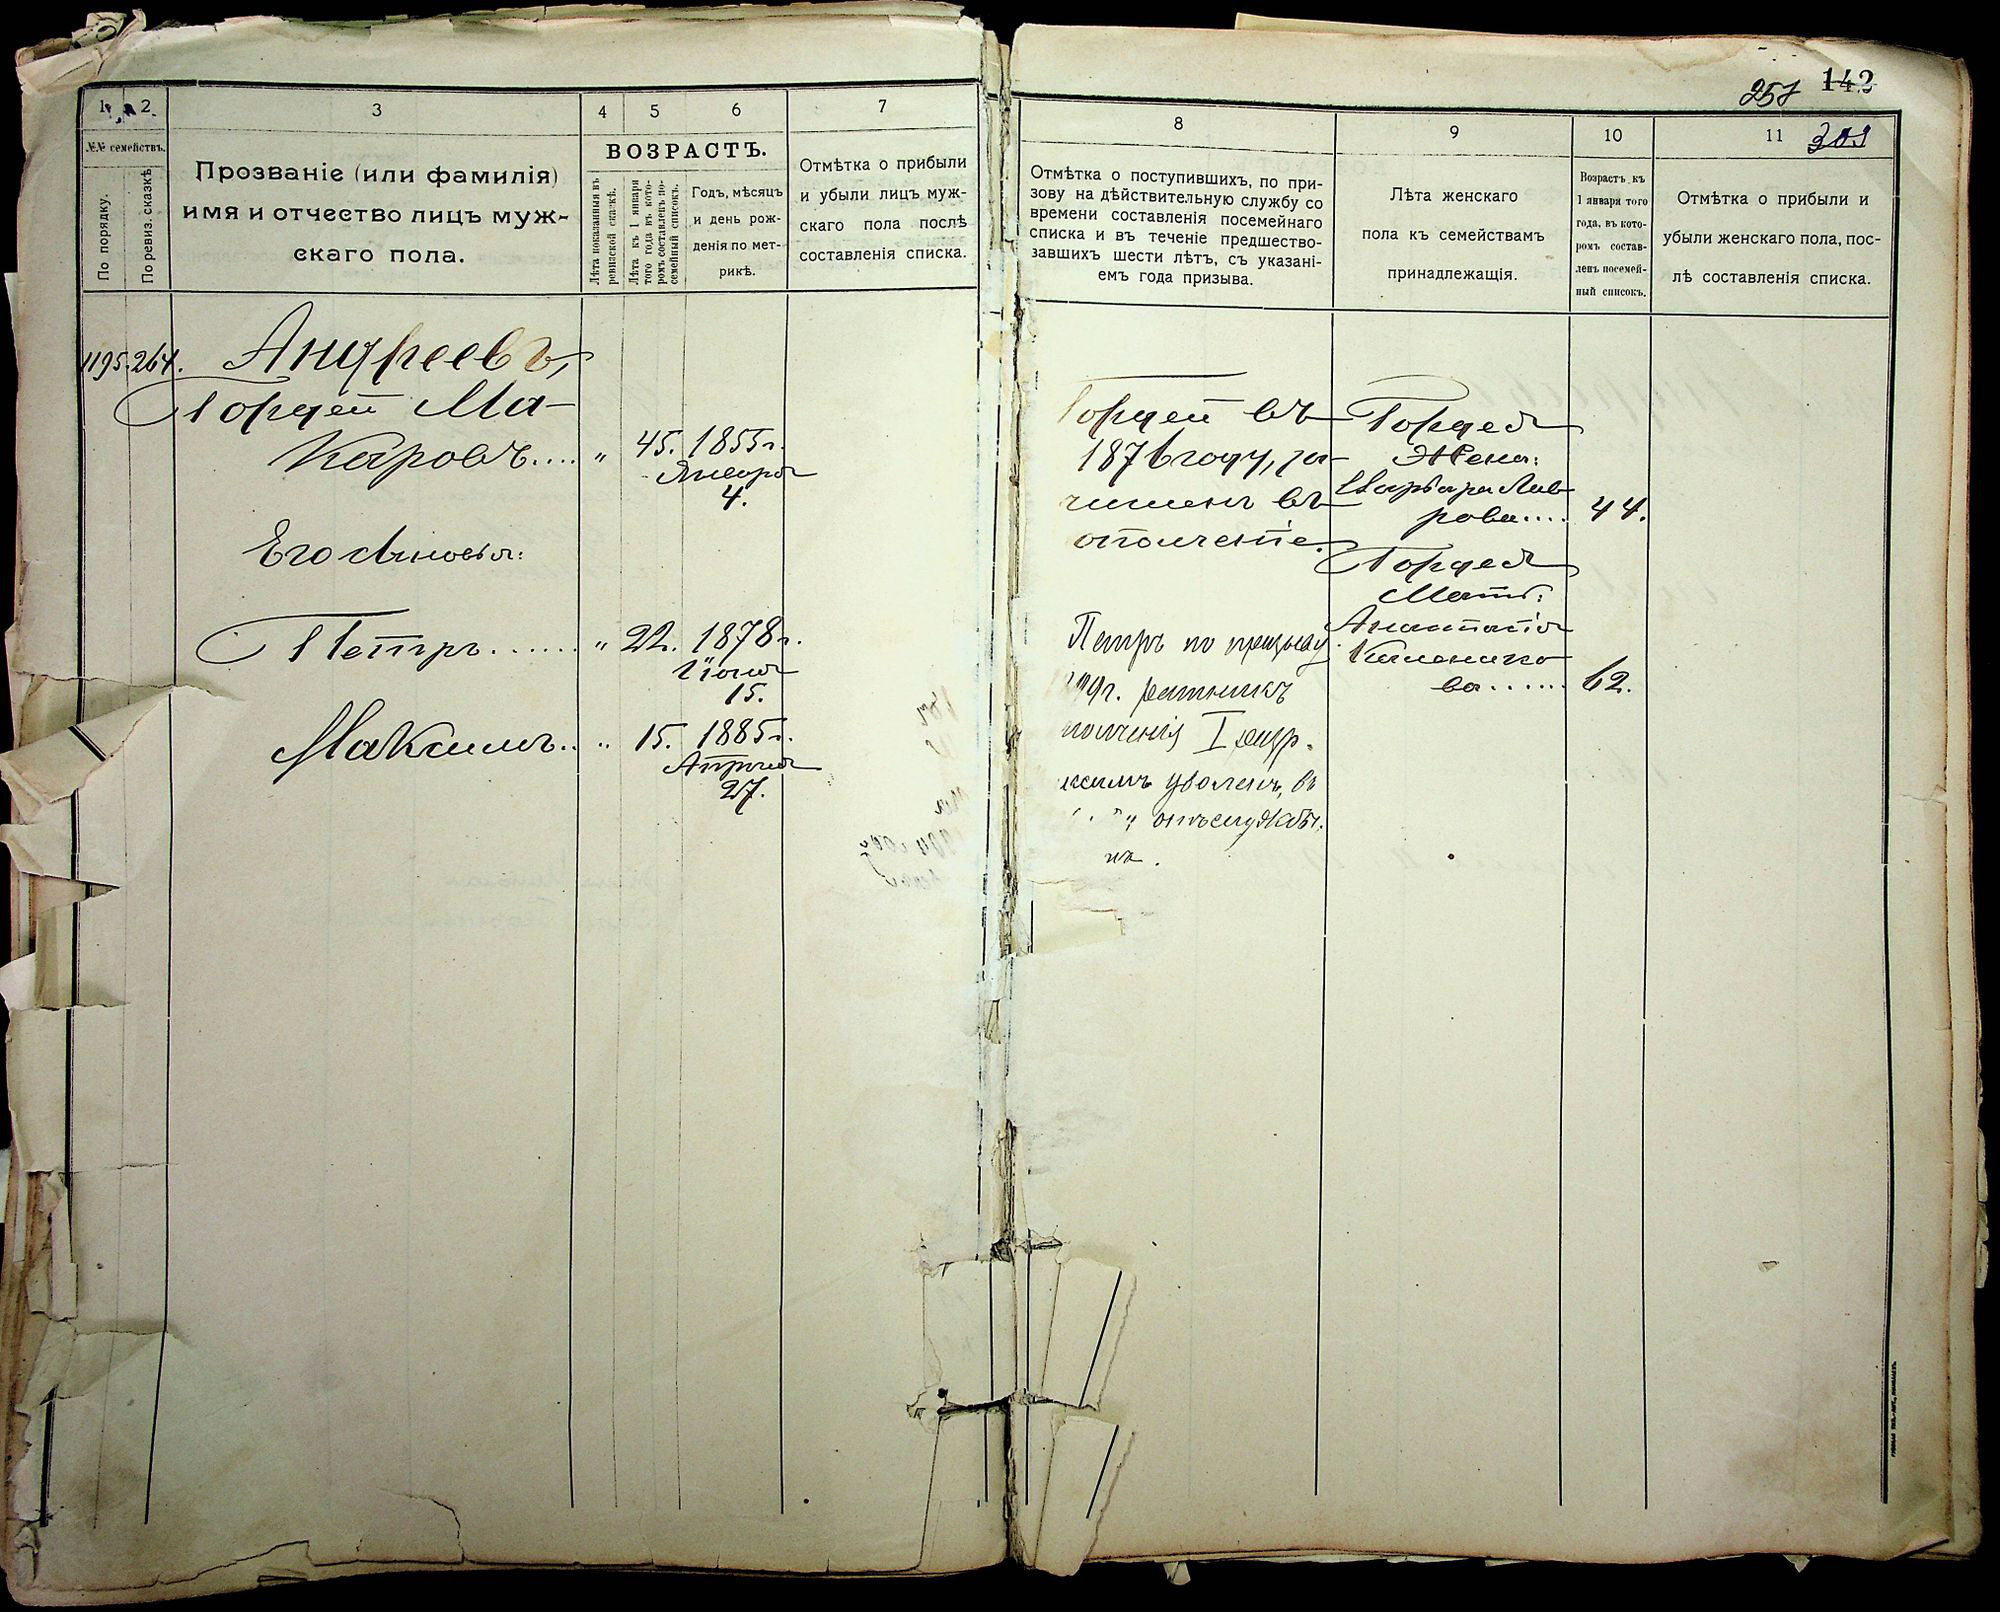 1 2 3 4 5 6 7
№№ семействъ.
По порядку.
По ревиз. сказкѣ.
Прозваніе (или фамилія)
имя и отчество лицъ муж-
скаго пола.
ВОЗРАСТЪ.
Лѣта показанныя въ
ревизской сказкѣ.
Лѣта къ 1 января
того года въ кото-
ромъ составленъ по-
семейный списокъ.
Годъ, мѣсяцъ
и день рож-
денія по мет-
рикѣ.
Отмѣтка о прибыли
и убыли лицъ муж-
скаго пола послѣ
составленія списка.
1195. 264. Андреевъ,
Гордей Ма-
каровъ.... „ 45. 1855 г.
Января
4.
Его сыновья:
Петръ...... „ 22. 1878 г.
Іюня
15.
Максимъ.. „ 15. 1885 г.
Апреля
27.
257 142
8 9 10 11 301
Отмѣтка о поступившихъ, по при-
зову на дѣйствительную службу со
времени составленія посемейнаго
списка и въ теченіе предшество-
завшихъ шести лѣтъ, съ указані-
емъ года призыва.
Лѣта женскаго
пола къ семействамъ
принадлежащія.
Возрастъ къ
1 января того
года, въ кото-
ромъ состав-
ленъ посемей-
ный списокъ.
Отмѣтка о прибыли и
убыли женскаго пола, пос-
лѣ составленія списка.
Гордей въ
1876 году, за-
численъ въ
ополченіе.
Петръ по призыву
г. ратникъ
ополченія I разр.
уволенъ, въ
отъ службы.
Гордея
Жена:
Варвара Лав-
рова.... 44.
Гордея
Мать:
Анастасія
Калинико-
ва...... 62.